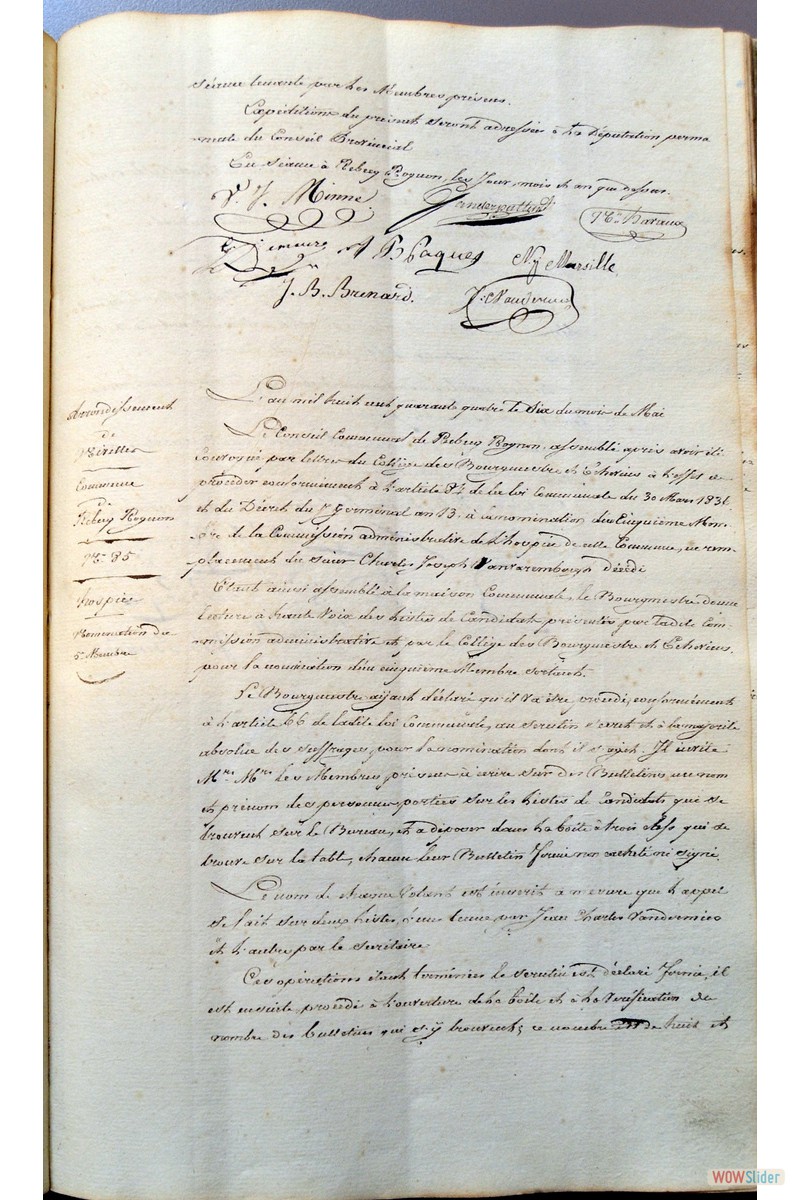 séance tenante par les Membres présens.
Expéditions du présent seront adressées à la Députation perma
-nente du Conseil Provincial
En séance à Rebecq Rognon, les jour, mois et an que dessus.
J. Minne
N. J. Marsille
J. B. Brenard.
Arrondissement
de
Nivelles
Commune
de
Rebecq Rognon
N.° 85
Hospice
Nomination du
5.e Membre
L'an mil huit cent quarante quatre le Dix du mois de Mai
Le Conseil Communal de Rebecq Rognon assemblé après avoir été
convoqué par lettre du Collège des Bourgmestre et Echevins à l'effet de
procéder conformément à l'article 84 de la loi Communale du 30 Mars 1836
et du Décret du 7 Germinal an 13. à la nomination du Cinquième Mem-
bre de la Commission administrative de l'hospice de cette Commune, en rem-
placement du sieur Charles Joseph Vanvarembergh décédé
Etant ainsi assemblé à la maison Communale, le Bourgmestre donne
lecture à haute voix des listes de Candidats présentés par ladite Com-
mission administrative et par le Collège des Bourgmestre et Echevins.
pour la nomination d'un cinquième Membre sortant.
Le Bourgmestre aijant déclaré qu'il va être procédé, conformément
à l'article 66 de ladite loi Communale, au scrutin secret et à la majorité
absolue des suffrages, pour la nomination dont il s'agit. Il invite
M.rs M.rs les Membres présens à écrire sur des Bulletins, un nom
et prénom des personnes portées sur les listes de Candidats qui se
trouvent sur le Bureau, et à déposer dans la boîte à trois clefs qui se
trouve sur la table, chacun leur Bulletin fermé non cacheté ni signé
Le nom de chaque Votant est inscrit à mesure que l'appel
se fait sur deux listes, l'une tenue par Jean Charles Vandermies
et l'autre par le secrétaire
Ces opérations étant terminées le scrutin est déclaré fermé, il
est ensuite procédé à l'ouverture de la boîte et à la vérification du
nombre des bulletins qui s'y trouvent; ce nombre est de huit et
WOWSlider